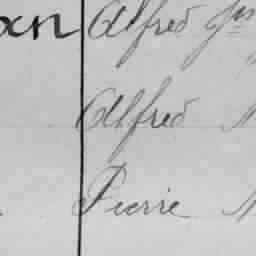 Alfred Jn
Alfred
Pierre